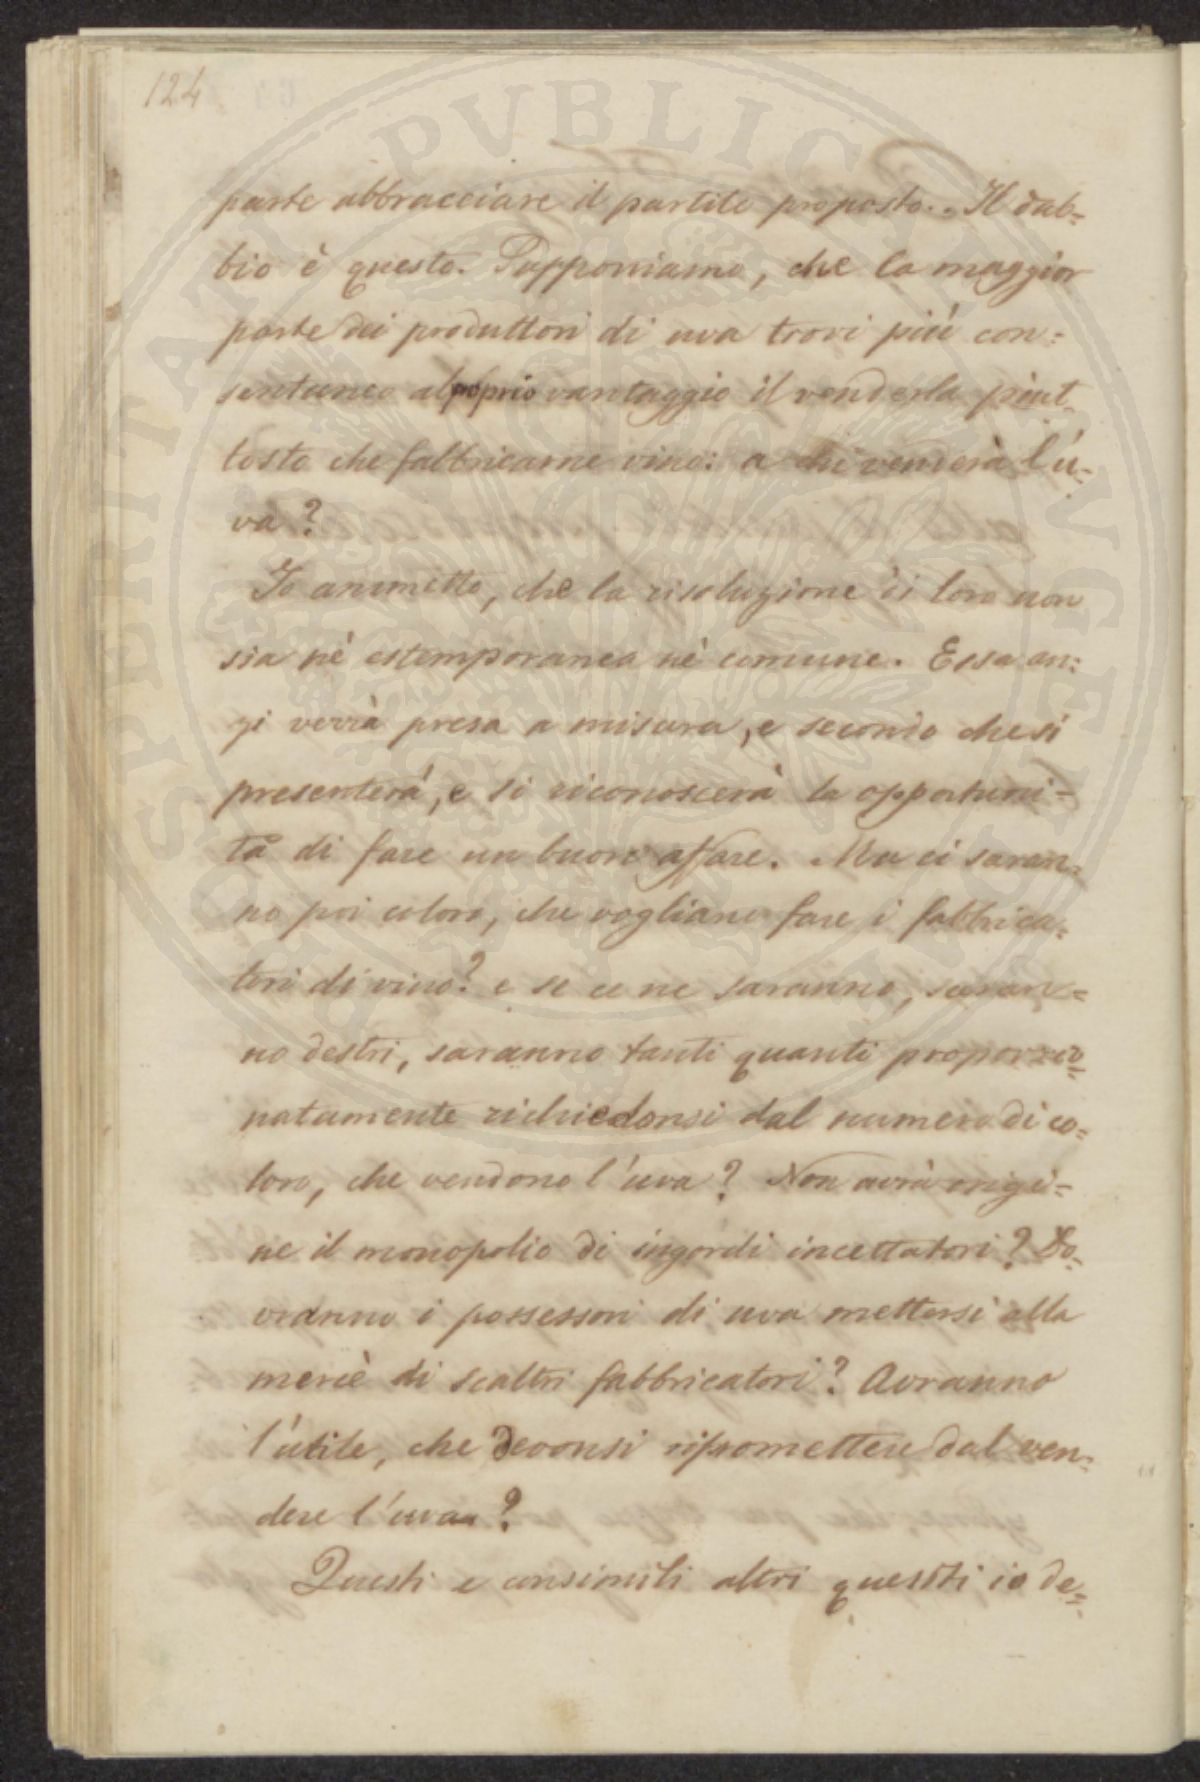 124
parte abbracciare il partito proposto. Il dub=
bio è questo. Supponiamo, che la maggior
parte dei produttori di uva trovi più con=
sentaneo al proprio vantaggio il venderla piut_
tosto che fabbricarne vino: a chi venderà l'u=
va?
Io ammetto, che la risoluzione di loro non
sia nè estemporanea nè comune. Essa an=
zi verrà presa a misura, e secondo che si
presenterà, e si riconoscerà la opportuni=
tà di fare un buon affare. Ma ci saran=
no poi coloro, che vogliano fare i fabbrica=
tori di vino? e se ce ne saranno, saran=
no destri, saranno tanti quanti proporzio=
natamente richiedonsi dal numero di co=
loro, che vendono l'uva? Non avrà origi=
ne il monopolio di ingordi incettatori? Do=
vranno i possessori di uva mettersi alla
mercè di scaltri fabbricatori? Avranno
l'utile, che devonsi ripromettere dal ven=
dere l'uva?
Questi e consimili altri quesiti io de=
PUBLIC
PERITATI